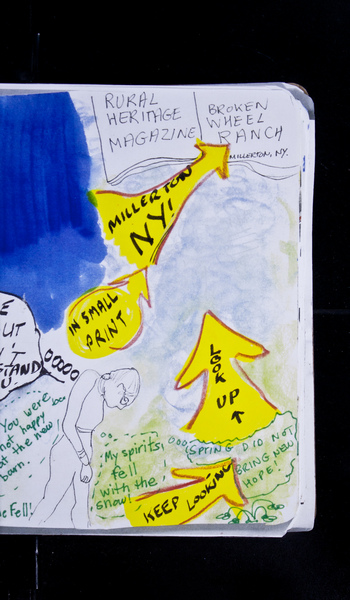 RURAL
HERITAGE
MAGAZINE
BROKEN
WHEEL
RANCH
MILLERTON, NY.
MILLERTON
NY!
IN SMALL
PRINT.
LOOK UP
You were
not happy
at the new
born.
My spirits
fell
with the
snow!
SPRING DID NOT
BRING NEW
HOPE!
KEEP LOOKING
Fell!